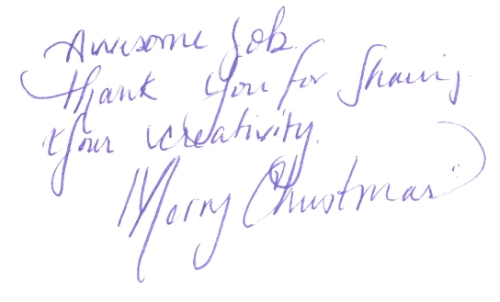 Awesome Job.
Thank you for Sharing
Your creativity.
Merry Christmas